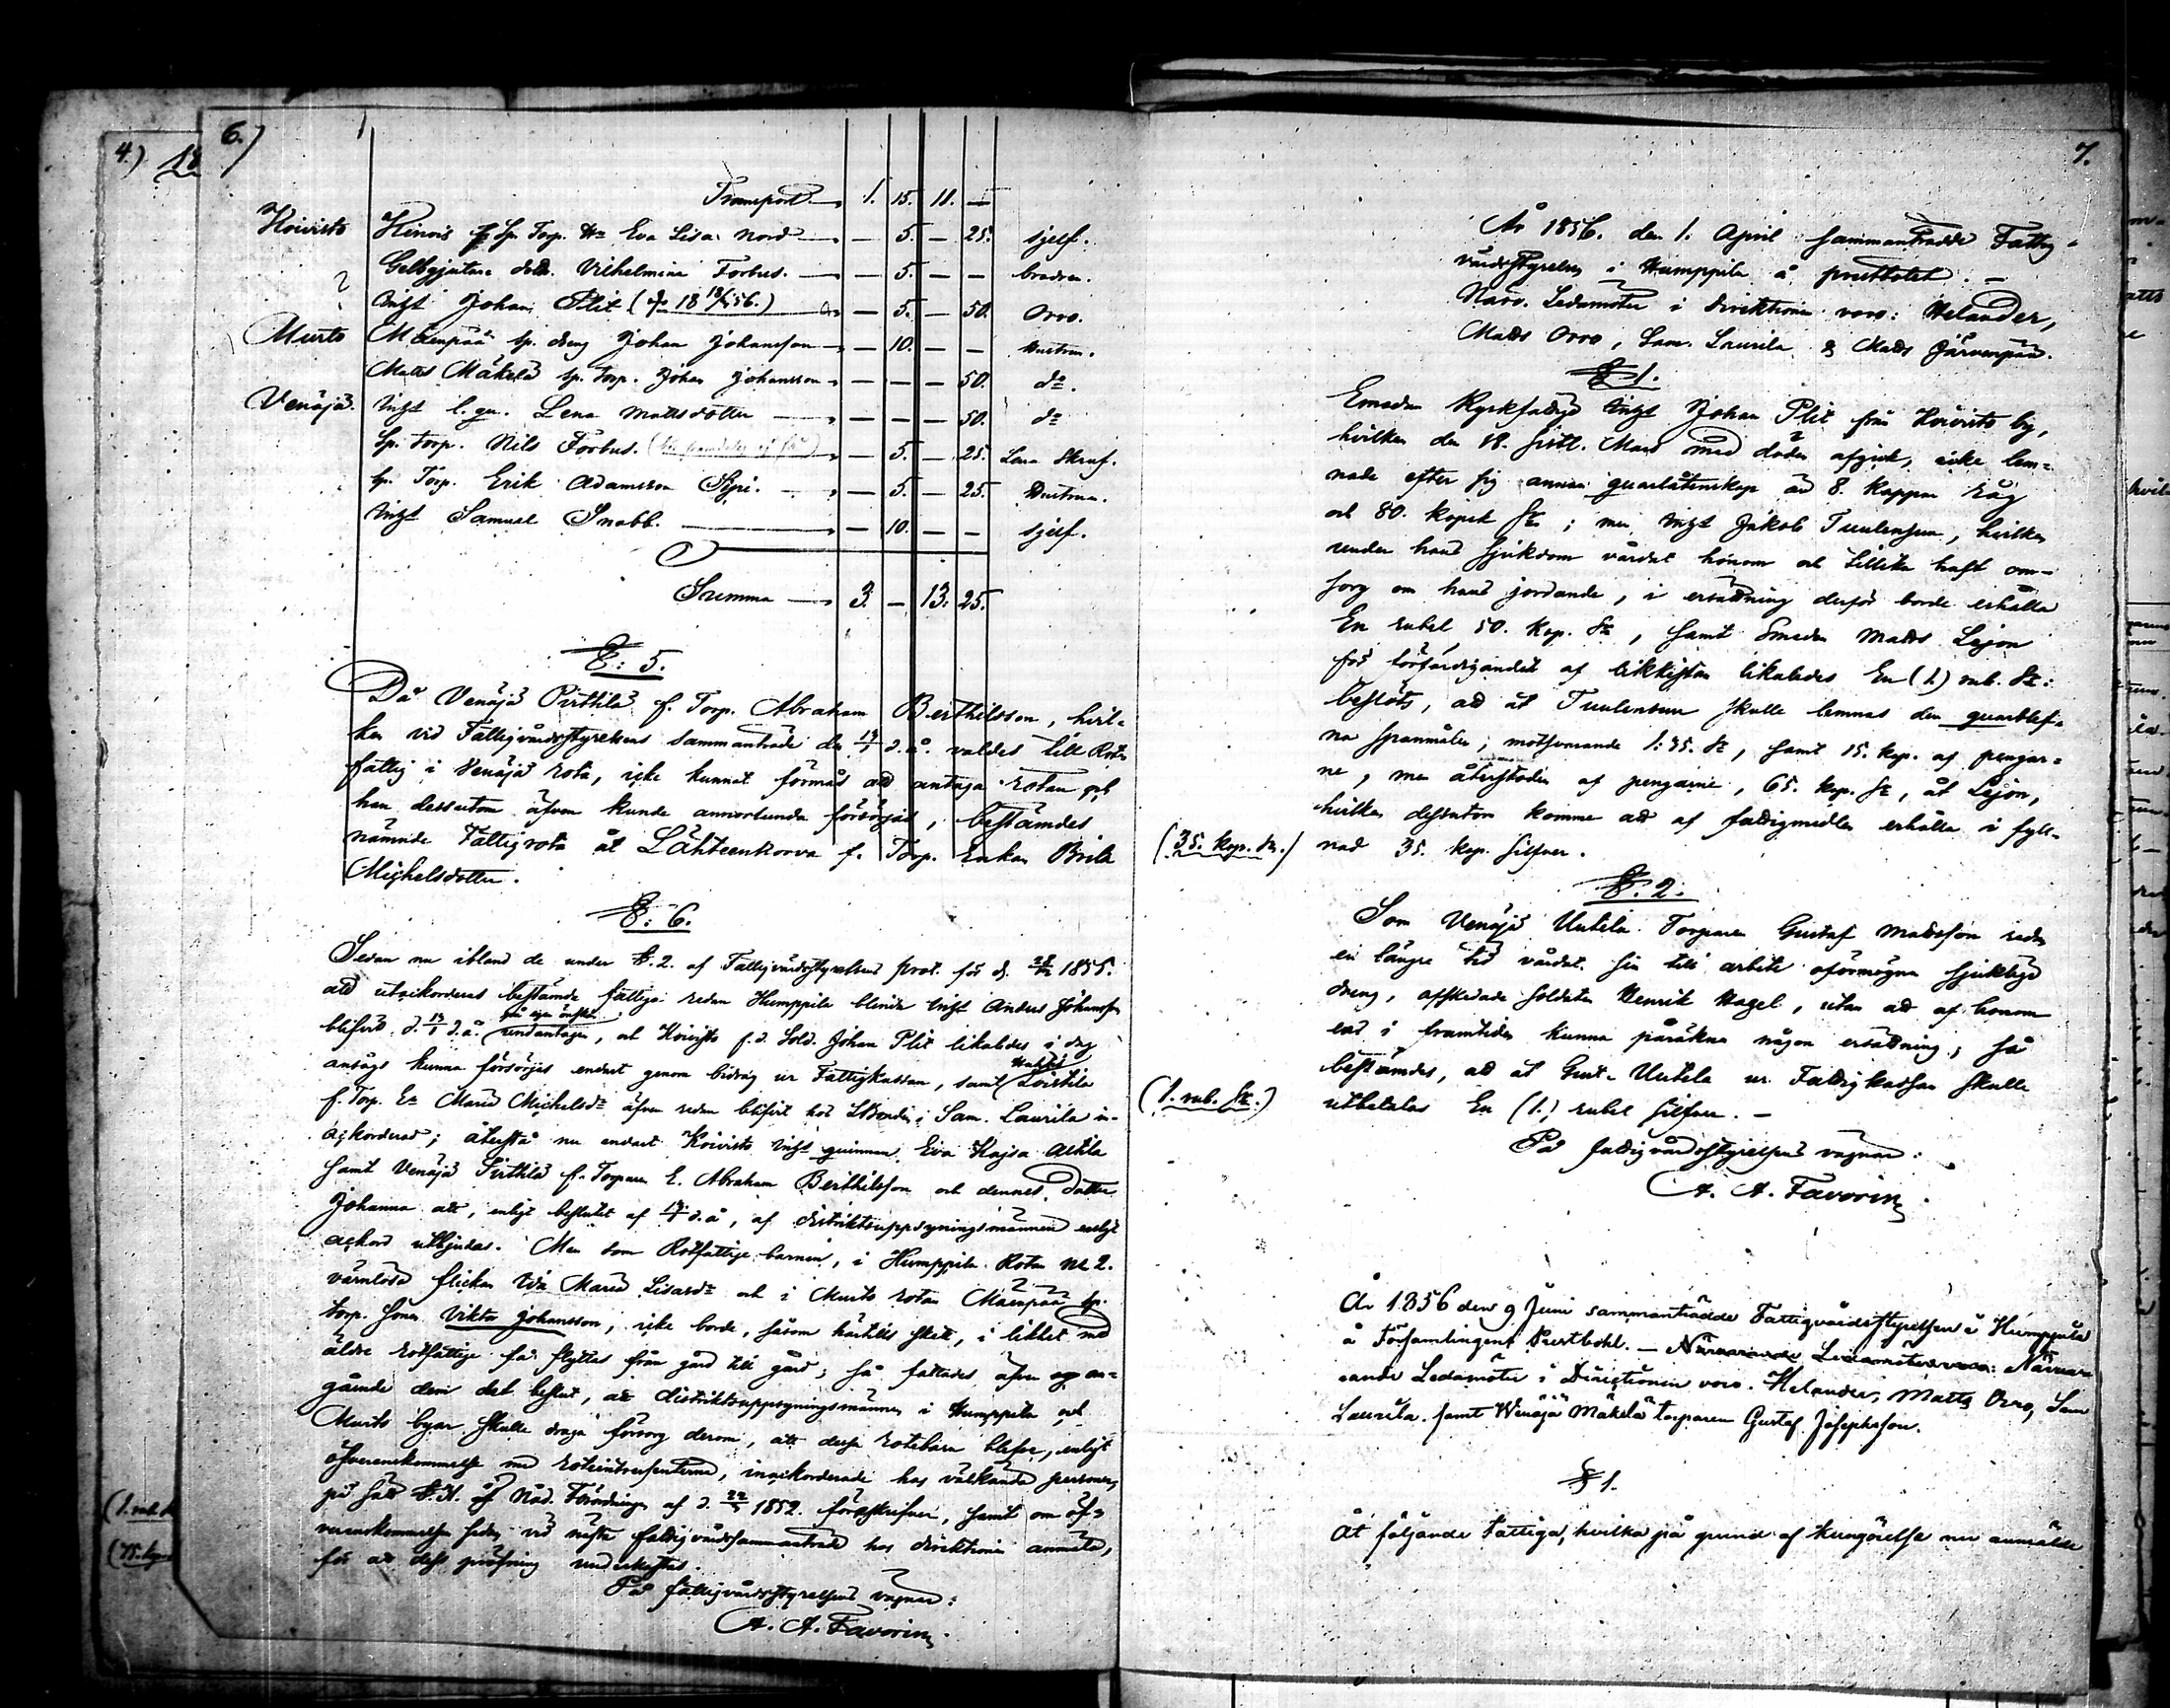 4.) 18
6.)
Transport 1. 15. 11. —
Koivisto Hinois f. sp. Torp. Ha Eva Lisa Nord — 5. — 25. sjelf.
? Gelbgjutare dott. Vilhelmina Forbus. — 5. — — brodren.
Inhs Johan Plit ( 18 18/3 56.) — 5. — 50. Orro.
Murto Mäenpää sp. dreng Johan Johansson — 10. — — Hustrun.
Matts Mäkelä sp. torp. Johan Johansson — — — 50. do.
Venäjä. Inhs l. qu. Lena Mattsdotter — — — 50. do
Sp. torp. Nils Forbus. — 5. — 25. Lena Skruf.
sp. Torp. Erik Adamsson Sipi. — 5. — 25. Hustrun.
Inhs Samuel Snabb. — 10. — — sjelf.
Summa 3. — 13. 25.
§: 5.
Då Venäjä Pirttilä f. Torp. Abraham Berthilsson, hvil-
ken vid Fattigvårdsstyrelsens sammanträde den d.å. valdes till Rote-
fattig i Venäjä rota, icke kunnat förmås att antaga rotan och
han dessutom äfven kunde annorlunda försörjas, bestämdes
nämnde Fattigrota åt Lähteenkorva f. Torp. Enkan Brita
Michelsdotter.
§: 6.
Sedan nu ibland de under §. 2. af Fattigvårdsstyrelsens prot. för d. 1855.
att utackorderas bestämde fattiga redan Humppila blinda Inhs Anders Johansson
på egen önskan
blifvit d. d.å. undantagen, och Koivisto f.d. Sold. Johan Plit likaledes i dag
ansågs kunna försörjas endast genom bidrag ur Fattigkassan, samt Loistila
f. Torp. Ea Maria Michelsdr äfven redan blifvit hos Sam. Laurila in-
ackorderad; återstå nu endast Koivisto Inhs quinnan Eva Kajsa
samt Venäjä Pirttilä f. Torparen E. Abraham Berthilsson och dennes dotter
Johanna att, enligt beslutet af d.å, af distriktsuppsyningsmännen enligt
ackord utbjudas. Men som Rotfattige barnen, i Humppila Rotan No 2.
värnlösa flickan Ida Maria Lisasdr och i Murto rotan Mäenpää sp.
torp. sonen Viktor Johansson, icke borde, såsom härtills skett, i likhet med
äldre rotfattige få flyttas från gård till gård; så fattades äfven an-
gående dem det beslut, att distriktsuppsyningsmännen i Humppila och
Murto byar skulle draga försorg derom, att dessa rotebarn blefve, enligt
öfverenskommelse med roteintressenterna, inackorderade hos välkända personer,
på sätt §. 31. af Nåd. Förordningen af d. 22/3 1852. föreskrifver, samt om öf-
verenskommelsen sedan vid nästa fattigvårdssammanträde hos direktionen anmäla,
för att dess pröfning underkastas.
På fattigvårdsstyrelsens vägnar:
A. A. Favorin.
7.
År 1856. den 1. April sammanträdde Fattig-
vårdsstyrelsen i Humppila å prestbolet. —
Närv. Ledamöter i direktionen voro: Helander,
Matts Orro, Sam. Laurila & Matts Järvenpää.
§ 1.
Emedan kyrkfattige Inhs Johan Plit från Koivisto by,
hvilken den 18. sistl. Mars med döden afgick, icke lem-
nade efter sig annan quarlåtenskap än 8. kappar råg
och 80. kopek Sr; men Inhs Jakob Tuulensuu, hvilken
under hans sjukdom vårdat honom och tillika haft om-
sorg om hans jordande, i ersättning derför borde erhålla
En rubel 50. kop. Sr, samt Smeden Matts Lejon
för förfärdigandet af likkistan likaledes En (1) rub. Sr:
beslöts, att åt Tuulensuu skulle lemnas den quarblef-
na spanmålen, motsvarande 1:35. Sr, samt 15. kop. af pengar-
ne, men återstoden af pengarne, 65. kop. Sr, åt Lejon,
hvilken dessutom komme att af fattigmedlen erhålla i fyll-
(35. kop. Sr.) nad 35. kop. Silfver.
§. 2.
Som Venäjä Uutela Torparen Gustaf Mattsson redan
en längre tid vårdat sin till arbete oförmögna sjuklige
dreng, afskedade soldaten Henrik Hagel, utan att af honom
ens i framtiden kunna påräkna någon ersättning; så
bestämdes, att åt Gust. Uutela ur Fattigkassan skulle
(1. rub. Sr.) utbetalas En (1.) rubel Silfver. —
På fattigvårdsstyrelsens vägnar:
A. A. Favorin.
År 1856 den 9 Juni sammanträdde Fattigvårdsstyrelsen i Humppila
å Församlingens Prestbohl. — Närvarande Ledamöter voro: Närva-
rande Ledamöter i Direcktionen voro. Helander, Matts Orro, Sam
Laurila samt Wenäjä Mäkelä torparen Gustaf Josephsson.
§ 1.
Åt följande Fattiga, hvilka på grund af kungörelse nu anmälde